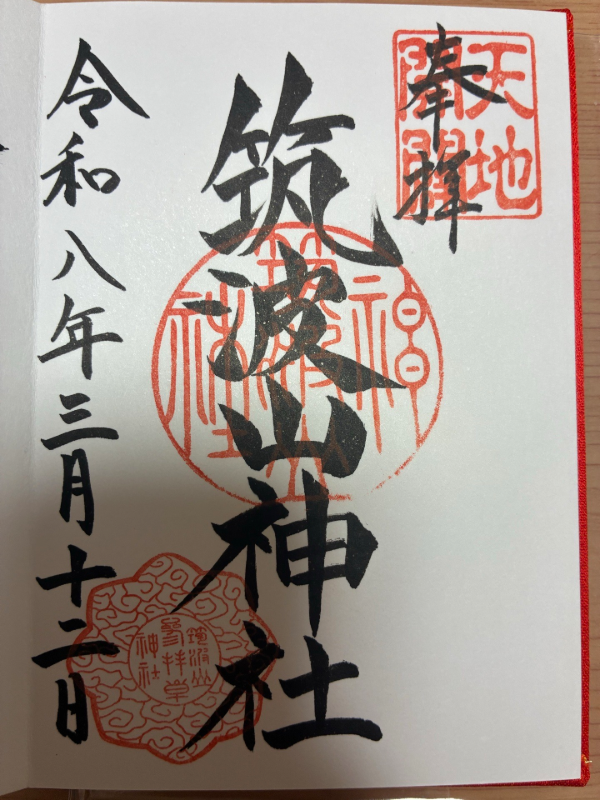 奉拝
天地
開闢
筑波山神社
筑波山
神社
令和八年三月十二日
筑波山
参拝章
神社